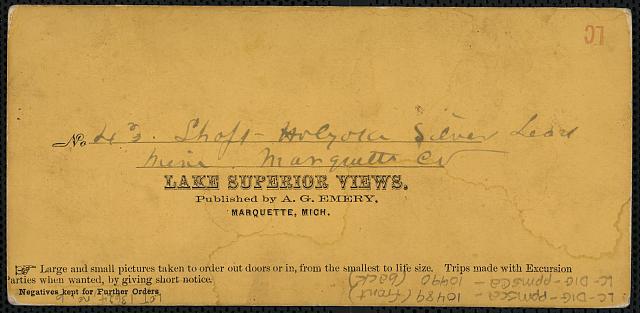 LC
No 43. Shaft - Holyoke Silver Lead
Mine. Marquette Co
LAKE SUPERIOR VIEWS.
Published by A. G. EMERY,
MARQUETTE, MICH.
☞ Large and small pictures taken to order out doors or in, from the smallest to life size. Trips made with Excursion
Parties when wanted, by giving short notice.
Negatives kept for Further Orders.
LC-DIG-ppmsca-10489 (front)
LC-DIG-ppmsca-10490 (back)
LOT